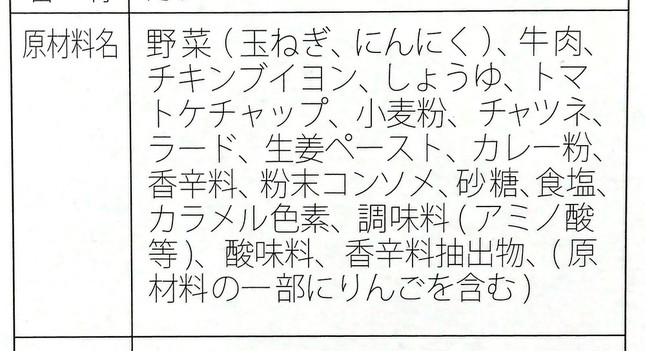 原材料名
野菜(玉ねぎ、にんにく)、牛肉、
チキンブイヨン、しょうゆ、トマ
トケチャップ、小麦粉、チャツネ、
ラード、生姜ペースト、カレー粉、
香辛料、粉末コンソメ、砂糖、食塩、
カラメル色素、調味料(アミノ酸
等)、酸味料、香辛料抽出物、(原
材料の一部にりんごを含む)